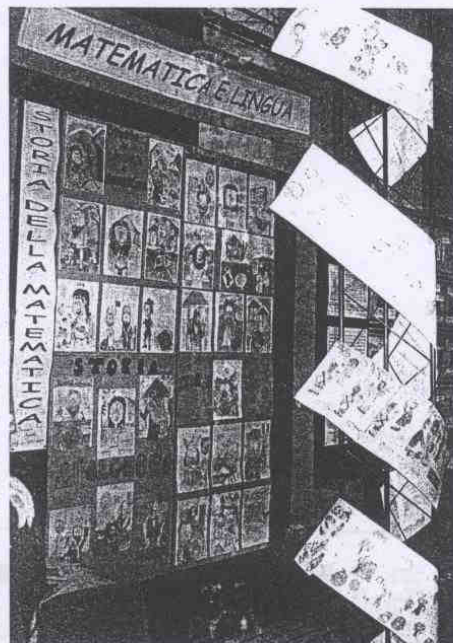 MATEMATICA E LINGUA
STORIA DELLA MATEMATICA
STORIA